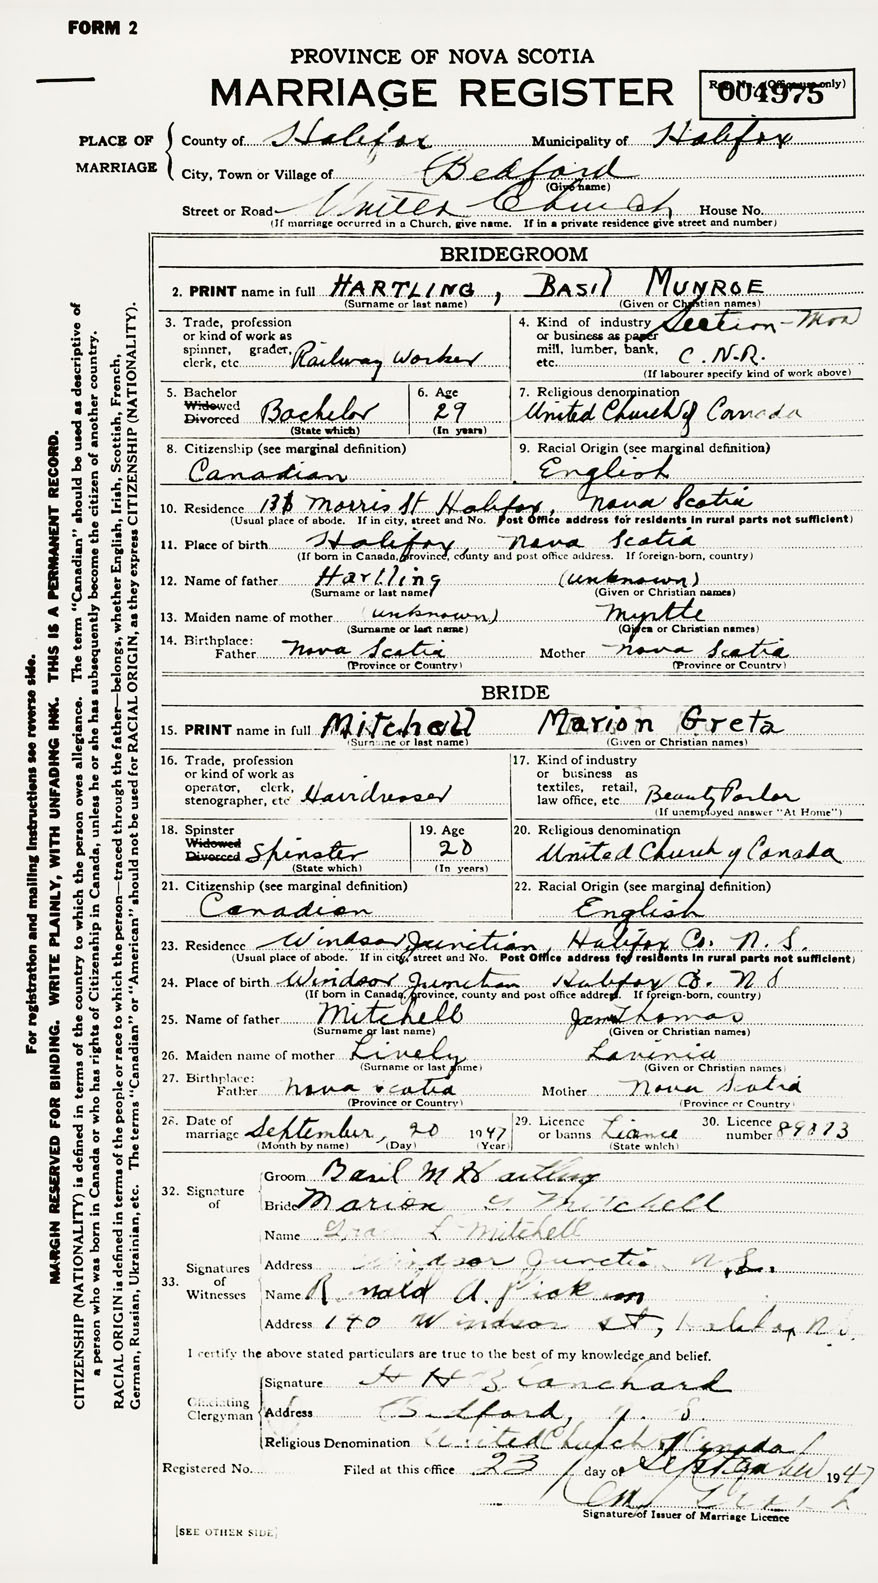 FORM 2
PROVINCE OF NOVA SCOTIA
MARRIAGE REGISTER
Reg. No. (Office use only)
004975
PLACE OF MARRIAGE
County of Halifax Municipality of Halifax
City, Town or Village of Bedford
(Give name)
Street or Road United Church House No.
(If marriage occurred in a Church, give name. If in a private residence give street and number)
BRIDEGROOM
2. PRINT name in full HARTLING, BASIL MUNROE
(Surname or last name) (Given or Christian names)
3. Trade, profession or kind of work as spinner, grader, clerk, etc Railway Worker
4. Kind of industry or business as paper mill, lumber, bank, etc. Section-Man C.N.R.
(If labourer specify kind of work above)
5. Bachelor Widowed Divorced Bachelor
(State which)
6. Age 29
(In years)
7. Religious denomination
United Church of Canada
8. Citizenship (see marginal definition)
Canadian
9. Racial Origin (see marginal definition)
English
10. Residence Morris St Halifax, Nova Scotia
(Usual place of abode. If in city, street and No. Post Office address for residents in rural parts not sufficient)
11. Place of birth Halifax, Nova Scotia
(If born in Canada, province, county and post office address. If foreign-born, country)
12. Name of father Hartling (unknown)
(Surname or last name) (Given or Christian names)
13. Maiden name of mother (unknown) Myrtle
(Surname or last name) (Given or Christian names)
14. Birthplace: Father Nova Scotia Mother Nova Scotia
(Province or Country) (Province or Country)
BRIDE
15. PRINT name in full Mitchell Marion Greta
(Surname or last name) (Given or Christian names)
16. Trade, profession or kind of work as operator, clerk, stenographer, etc Hairdresser
17. Kind of industry or business as textiles, retail, law office, etc Beauty Parlor
(If unemployed answer "At Home")
18. Spinster Widowed Divorced Spinster
(State which)
19. Age 20
(In years)
20. Religious denomination
United Church of Canada
21. Citizenship (see marginal definition)
Canadian
22. Racial Origin (see marginal definition)
English
23. Residence Windsor Junction, Halifax Co. N.S.
(Usual place of abode. If in city, street and No. Post Office address for residents in rural parts not sufficient)
24. Place of birth Windsor Junction Halifax Co. N S
(If born in Canada, province, county and post office address. If foreign-born, country)
25. Name of father Mitchell Thomas
(Surname or last name) (Given or Christian names)
26. Maiden name of mother Lively Lavinia
(Surname or last name) (Given or Christian names)
27. Birthplace: Father Nova Scotia Mother Nova Scotia
(Province or Country) (Province or Country)
28. Date of marriage September, 20 1947
(Month by name) (Day) (Year)
29. Licence or banns Licence
(State which)
30. Licence number
32. Signature of
Groom Basil M Hartling
Bride Marion G Mitchell
33. Signatures of Witnesses
Name L Mitchell
Address Windsor Junction N.S.
Name Ronald A.
Address 140 Windsor St, Halifax N.S.
I certify the above stated particulars are true to the best of my knowledge and belief.
Officiating Clergyman
Signature H H Blanchard
Address Bedford, N. S.
Religious Denomination United Church of Canada
Registered No. Filed at this office 23 day of September 1947
Signature of Issuer of Marriage Licence
[SEE OTHER SIDE]
For registration and mailing instructions see reverse side.
MARGIN RESERVED FOR BINDING. WRITE PLAINLY, WITH UNFADING INK. THIS IS A PERMANENT RECORD.
CITIZENSHIP (NATIONALITY) is defined in terms of the country to which the person owes allegiance. The term "Canadian" should be used as descriptive of
a person who was born in Canada or who has rights of Citizenship in Canada, unless he or she has subsequently become the citizen of another country.
RACIAL ORIGIN is defined in terms of the people or race to which the person—traced through the father—belongs, whether English, Irish, Scottish, French,
German, Russian, Ukrainian, etc. The terms "Canadian" or "American" should not be used for RACIAL ORIGIN, as they express CITIZENSHIP (NATIONALITY).